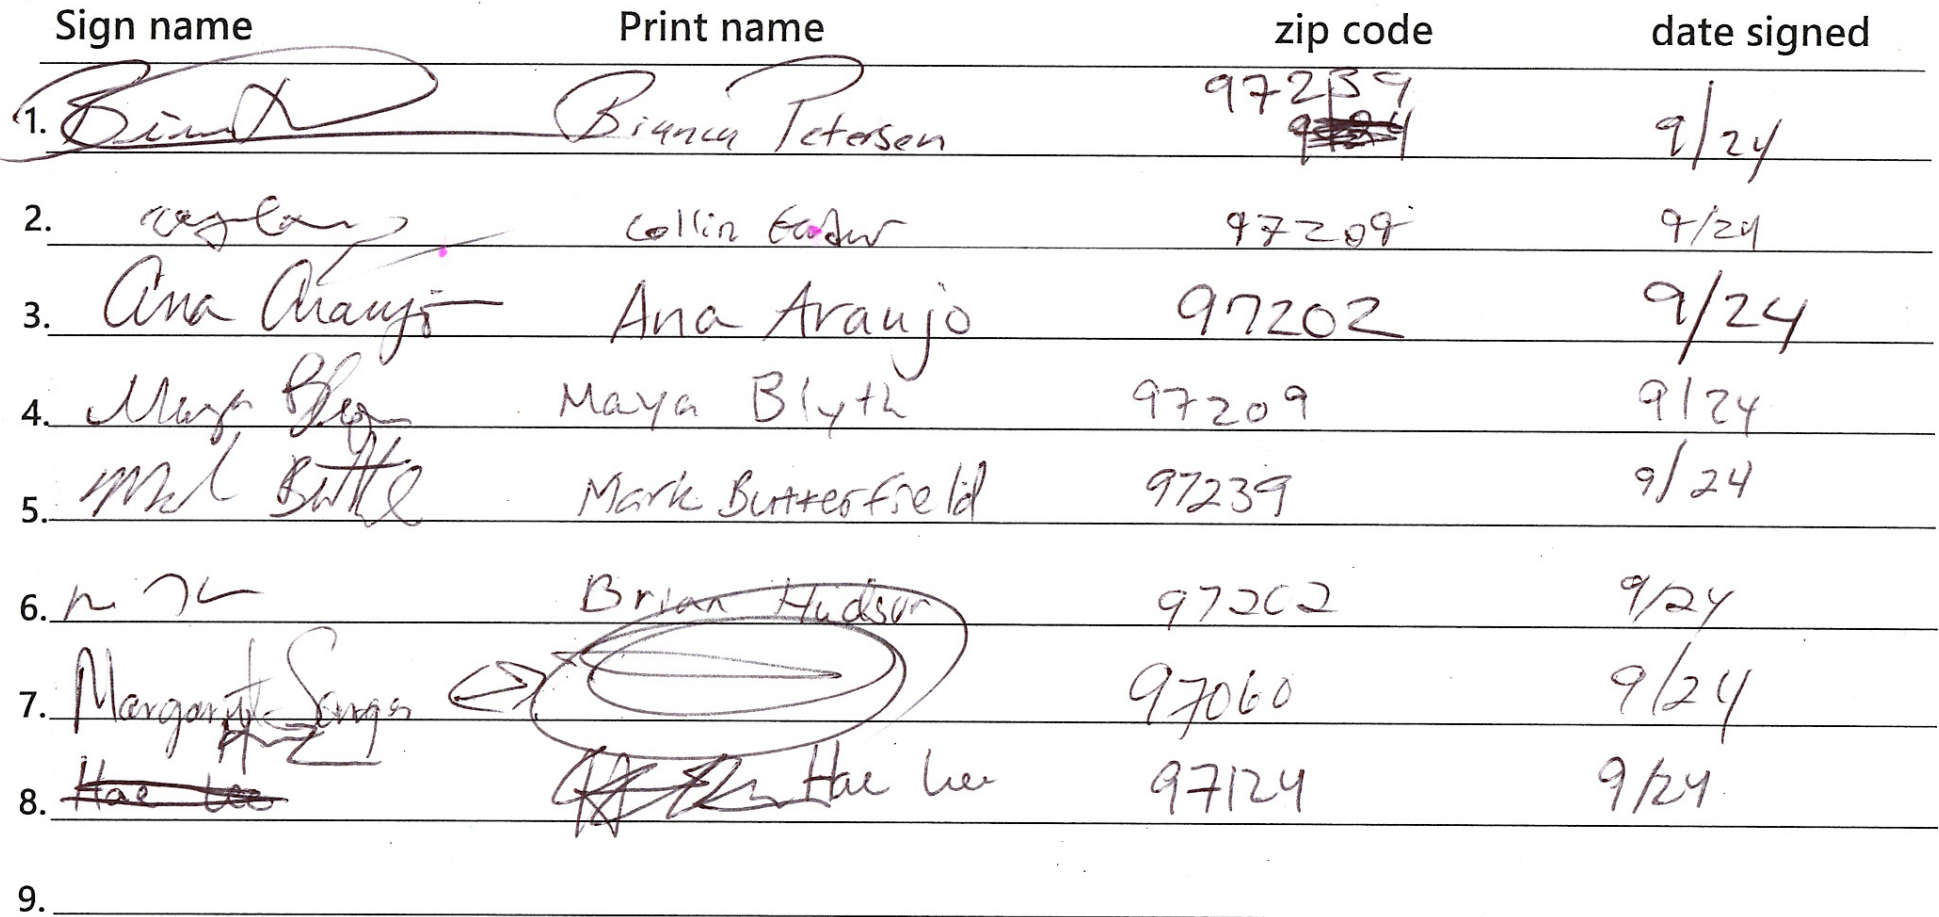 Sign name Print name zip code date signed
1. Bianca Petersen 97239 9/24
2. Collin 97209 9/24
3. Ana Araujo Ana Araujo 97202 9/24
4. Maya Maya Blyth 97209 9/24
5. Mark Butterfield 97239 9/24
6. Brian Hudson 97202 9/24
7. Margaret 97060 9/24
8. Hae Lee Hae Lee 97124 9/24
9.